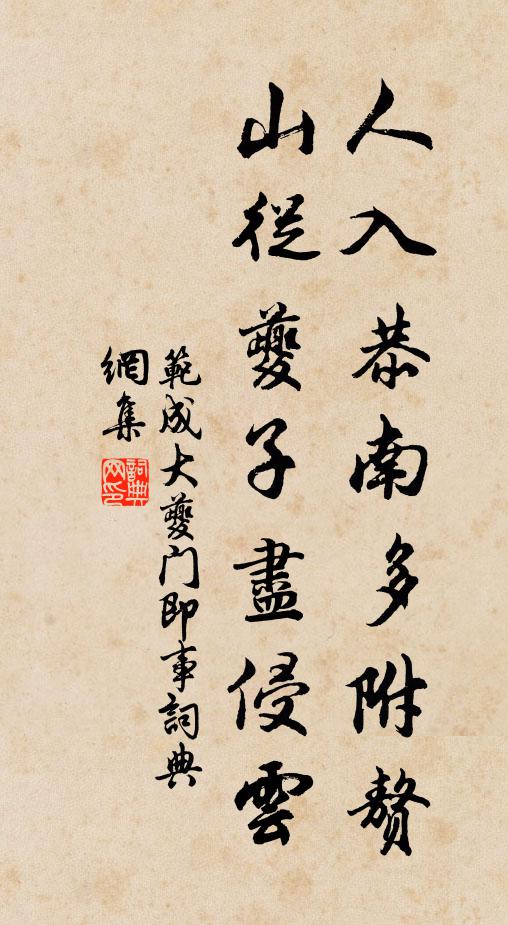 人入恭南多附贅
山從夔子盡侵雲
範成大夔门即事詞典
網集
詞典
网印